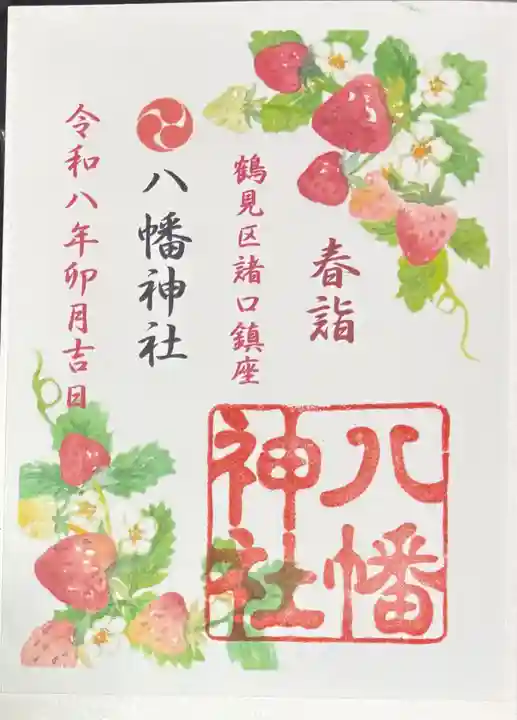 春詣
鶴見区諸口鎮座
八幡神社
令和八年卯月吉日
八幡
神社